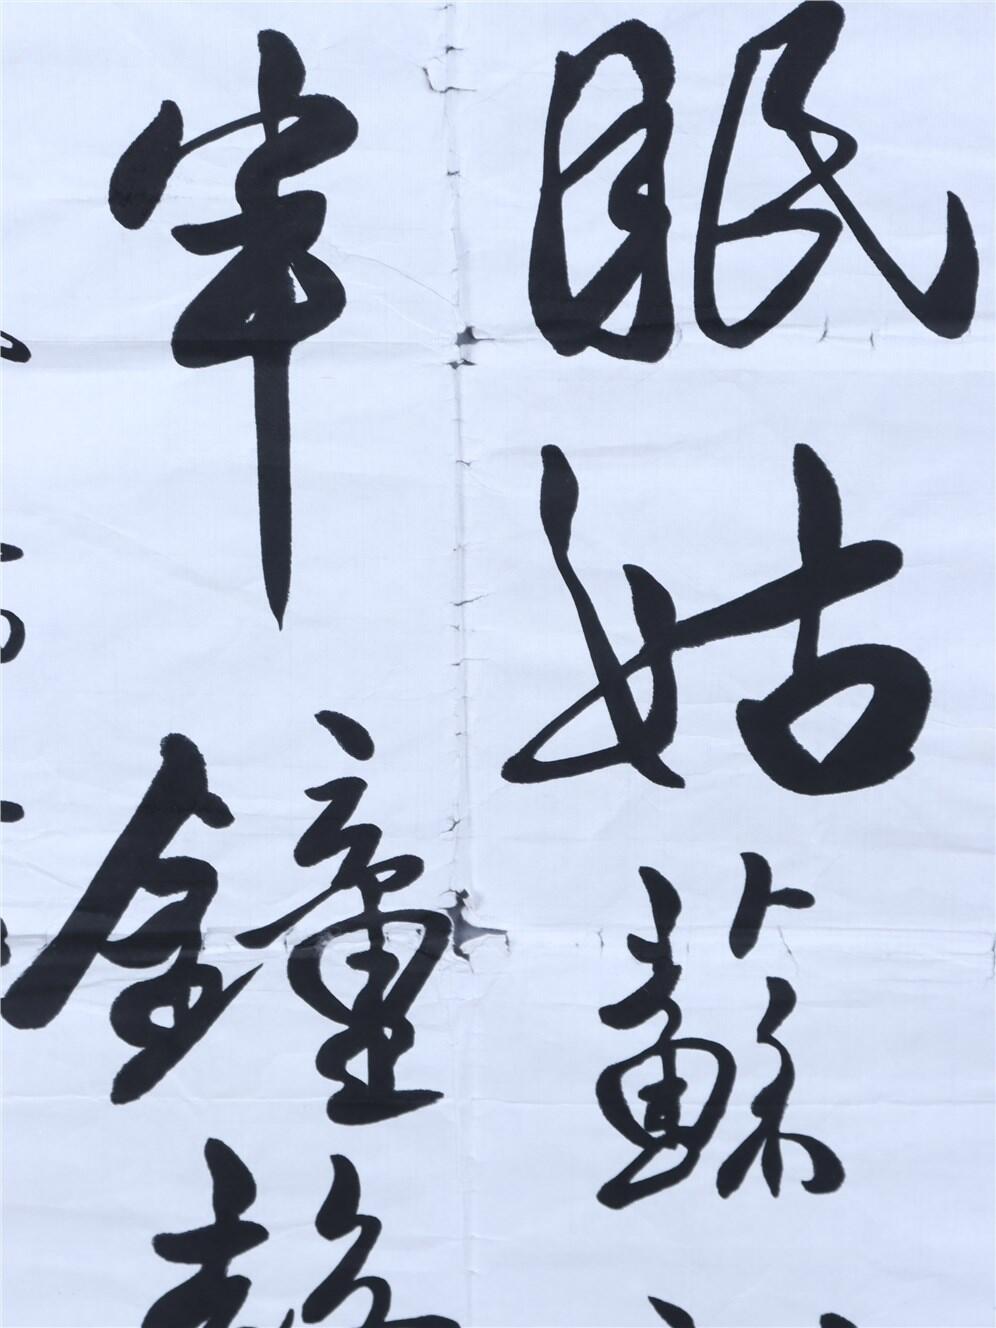 眠姑蘇
半鐘聲